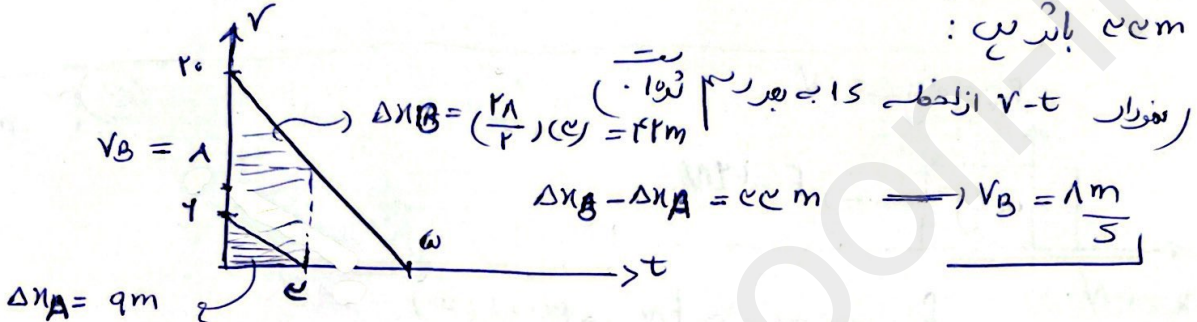 ۳۳m باشد پس :
(نمودار v-t از لحظه 1s به بعد رسم شده است.)
V
۲۰
V_B = ۸
۶
Δx_B = (۲۸/۲)(۳) = ۴۲m
Δx_B - Δx_A = ۳۳m ⟹ V_B = ۸ m/s
۳
۵
t
Δx_A = ۹m